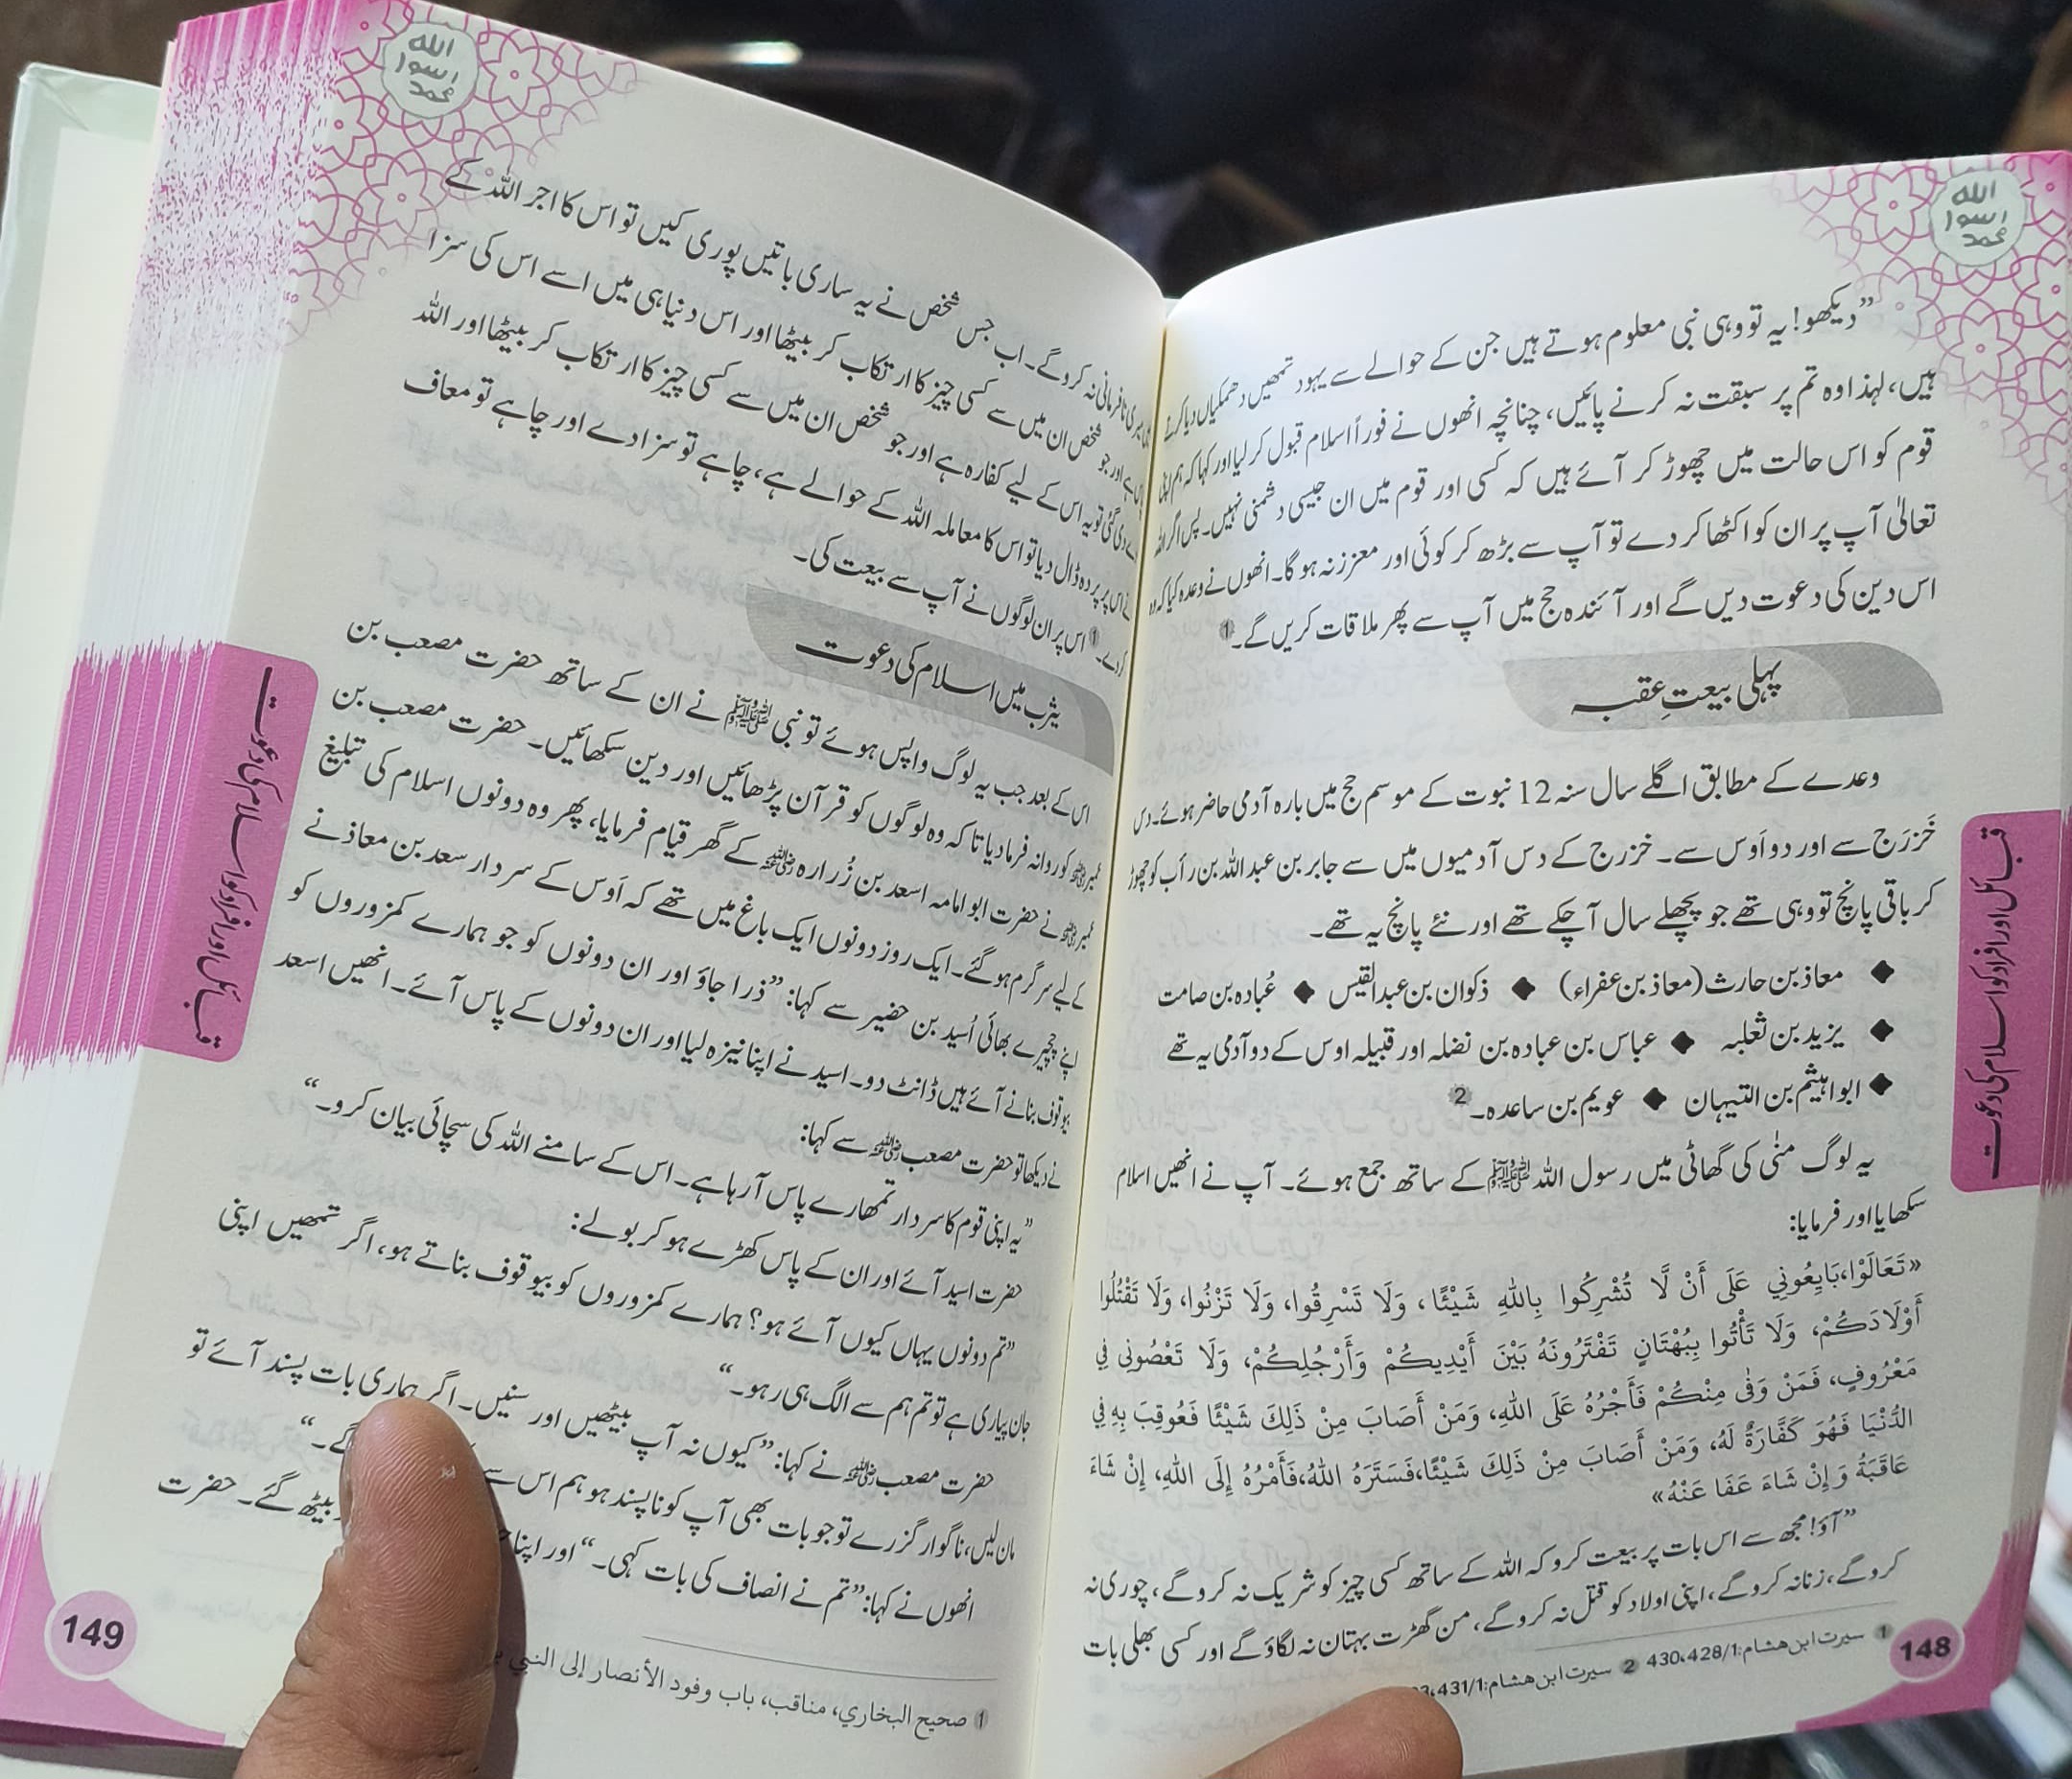 الله
رسول
محمد
”دیکھو! یہ تو وہی نبی معلوم ہوتے ہیں جن کے حوالے سے یہود تمھیں دھمکیاں دیا کرتے
ہیں، لہذا وہ تم پر سبقت نہ کرنے پائیں، چنانچہ انھوں نے فوراً اسلام قبول کر لیا اور کہا کہ ہم اپنی
قوم کو اس حالت میں چھوڑ کر آئے ہیں کہ کسی اور قوم میں ان جیسی دشمنی نہیں۔ پس اگر اللہ
تعالیٰ آپ پر ان کو اکٹھا کر دے تو آپ سے بڑھ کر کوئی اور معزز نہ ہو گا۔ انھوں نے وعدہ کیا کہ وہ
اس دین کی دعوت دیں گے اور آئندہ حج میں آپ سے پھر ملاقات کریں گے۔ 1
پہلی بیعتِ عقبہ
وعدے کے مطابق اگلے سال سنہ 12 نبوت کے موسم حج میں بارہ آدمی حاضر ہوئے۔ دس
خَزرَج سے اور دو اَوس سے۔ خزرج کے دس آدمیوں میں سے جابر بن عبد اللہ بن رأب کو چھوڑ
کر باقی پانچ تو وہی تھے جو پچھلے سال آ چکے تھے اور نئے پانچ یہ تھے۔
◆ معاذ بن حارث (معاذ بن عفراء) ◆ ذکوان بن عبد القیس ◆ عُبادہ بن صامت
◆ یزید بن ثعلبہ ◆ عباس بن عبادہ بن نضلہ اور قبیلہ اوس کے دو آدمی یہ تھے
◆ ابو الہیثم بن التیہان ◆ عویم بن ساعدہ۔ 2
یہ لوگ منٰی کی گھاٹی میں رسول اللہ ﷺ کے ساتھ جمع ہوئے۔ آپ نے انھیں اسلام
سکھایا اور فرمایا:
«تَعَالَوْا، بَايِعُونِي عَلَى أَنْ لَّا تُشْرِكُوا بِاللهِ شَيْئًا، وَلَا تَسْرِقُوا، وَلَا تَزْنُوا، وَلَا تَقْتُلُوا
أَوْلَادَكُمْ، وَلَا تَأْتُوا بِبُهْتَانٍ تَفْتَرُونَهُ بَيْنَ أَيْدِيكُمْ وَأَرْجُلِكُمْ، وَلَا تَعْصُونِي فِي
مَعْرُوفٍ، فَمَنْ وَفٰى مِنْكُمْ فَأَجْرُهُ عَلَى اللهِ، وَمَنْ أَصَابَ مِنْ ذَلِكَ شَيْئًا فَعُوقِبَ بِهِ فِي
الدُّنْيَا فَهُوَ كَفَّارَةٌ لَهُ، وَمَنْ أَصَابَ مِنْ ذَلِكَ شَيْئًا، فَسَتَرَهُ اللهُ، فَأَمْرُهُ إِلَى اللهِ، إِنْ شَاءَ
عَاقَبَهُ وَإِنْ شَاءَ عَفَا عَنْهُ»
”آؤ! مجھ سے اس بات پر بیعت کرو کہ اللہ کے ساتھ کسی چیز کو شریک نہ کرو گے، چوری نہ
کرو گے، زنا نہ کرو گے، اپنی اولاد کو قتل نہ کرو گے، من گھڑت بہتان نہ لگاؤ گے اور کسی بھلی بات
1 سیرت ابن هشام: 1/428، 430 2 سیرت ابن هشام: 1/431،
148
قبائل اور افراد کو اسلام کی دعوت
الله
رسول
محمد
میری نافرمانی نہ کرو گے۔ اب جس شخص نے یہ ساری باتیں پوری کیں تو اس کا اجر اللہ کے
ہے اور جو شخص ان میں سے کسی چیز کا ارتکاب کر بیٹھا اور اس دنیا ہی میں اسے اس کی سزا
دی گئی تو یہ اس کے لیے کفارہ ہے اور جو شخص ان میں سے کسی چیز کا ارتکاب کر بیٹھا اور اللہ
نے اس پر پردہ ڈال دیا تو اس کا معاملہ اللہ کے حوالے ہے، چاہے تو سزا دے اور چاہے تو معاف
کر دے۔ 1 اس پر ان لوگوں نے آپ سے بیعت کی۔
یثرب میں اسلام کی دعوت
اس کے بعد جب یہ لوگ واپس ہوئے تو نبی ﷺ نے ان کے ساتھ حضرت مصعب بن
عمیر رضی اللہ عنہ کو روانہ فرما دیا تاکہ وہ لوگوں کو قرآن پڑھائیں اور دین سکھائیں۔ حضرت مصعب بن
عمیر رضی اللہ عنہ نے حضرت ابو امامہ اسعد بن زُرارہ رضی اللہ عنہ کے گھر قیام فرمایا، پھر وہ دونوں اسلام کی تبلیغ
کے لیے سرگرم ہو گئے۔ ایک روز دونوں ایک باغ میں تھے کہ اَوس کے سردار سعد بن معاذ نے
اپنے چچیرے بھائی اُسید بن حضیر سے کہا: ”ذرا جاؤ اور ان دونوں کو جو ہمارے کمزوروں کو
بیوقوف بنانے آئے ہیں ڈانٹ دو۔ اسید نے اپنا نیزہ لیا اور ان دونوں کے پاس آئے۔ انھیں اسعد
نے دیکھا تو حضرت مصعب رضی اللہ عنہ سے کہا:
”یہ اپنی قوم کا سردار تمھارے پاس آ رہا ہے۔ اس کے سامنے اللہ کی سچائی بیان کرو۔“
حضرت اسید آئے اور ان کے پاس کھڑے ہو کر بولے:
”تم دونوں یہاں کیوں آئے ہو؟ ہمارے کمزوروں کو بیوقوف بناتے ہو، اگر تمھیں اپنی
جان پیاری ہے تو تم ہم سے الگ ہی رہو۔“
حضرت مصعب رضی اللہ عنہ نے کہا: ”کیوں نہ آپ بیٹھیں اور سنیں۔ اگر ہماری بات پسند آئے تو
مان لیں، ناگوار گزرے تو جو بات بھی آپ کو ناپسند ہو ہم اس سے گے۔“
انھوں نے کہا: ”تم نے انصاف کی بات کہی۔“ اور اپنا بیٹھ گئے۔ حضرت
1 صحیح البخاري، مناقب، باب وفود الأنصار إلى النبي
149
قبائل اور افراد کو اسلام کی دعوت